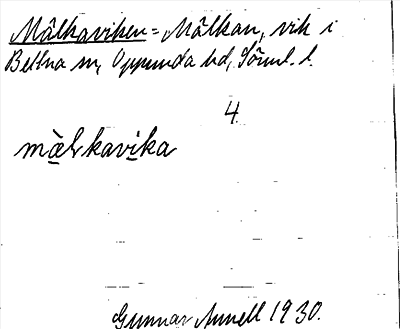 Mâlkaviken = Mâlkan, vik i
Bettna sn, Oppunda hd, Sörml. l.
4
màlkavika
Gunnar Annell 1930.